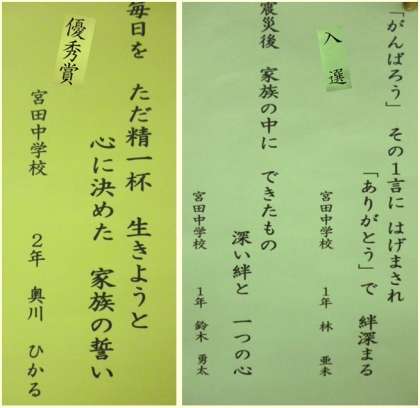 優秀賞
毎日を ただ精一杯 生きようと
心に決めた 家族の誓い
宮田中学校 2年 奥川 ひかる
入選
「がんばろう」 その1言に はげまされ
「ありがとう」で 絆深まる
宮田中学校 1年 林 亜未
震災後 家族の中に できたもの
深い絆と 一つの心
宮田中学校 1年 鈴木 勇太